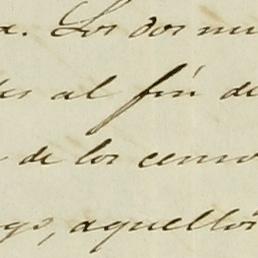 . Los dos mi
es al fin de
de los censo
go, aquellos